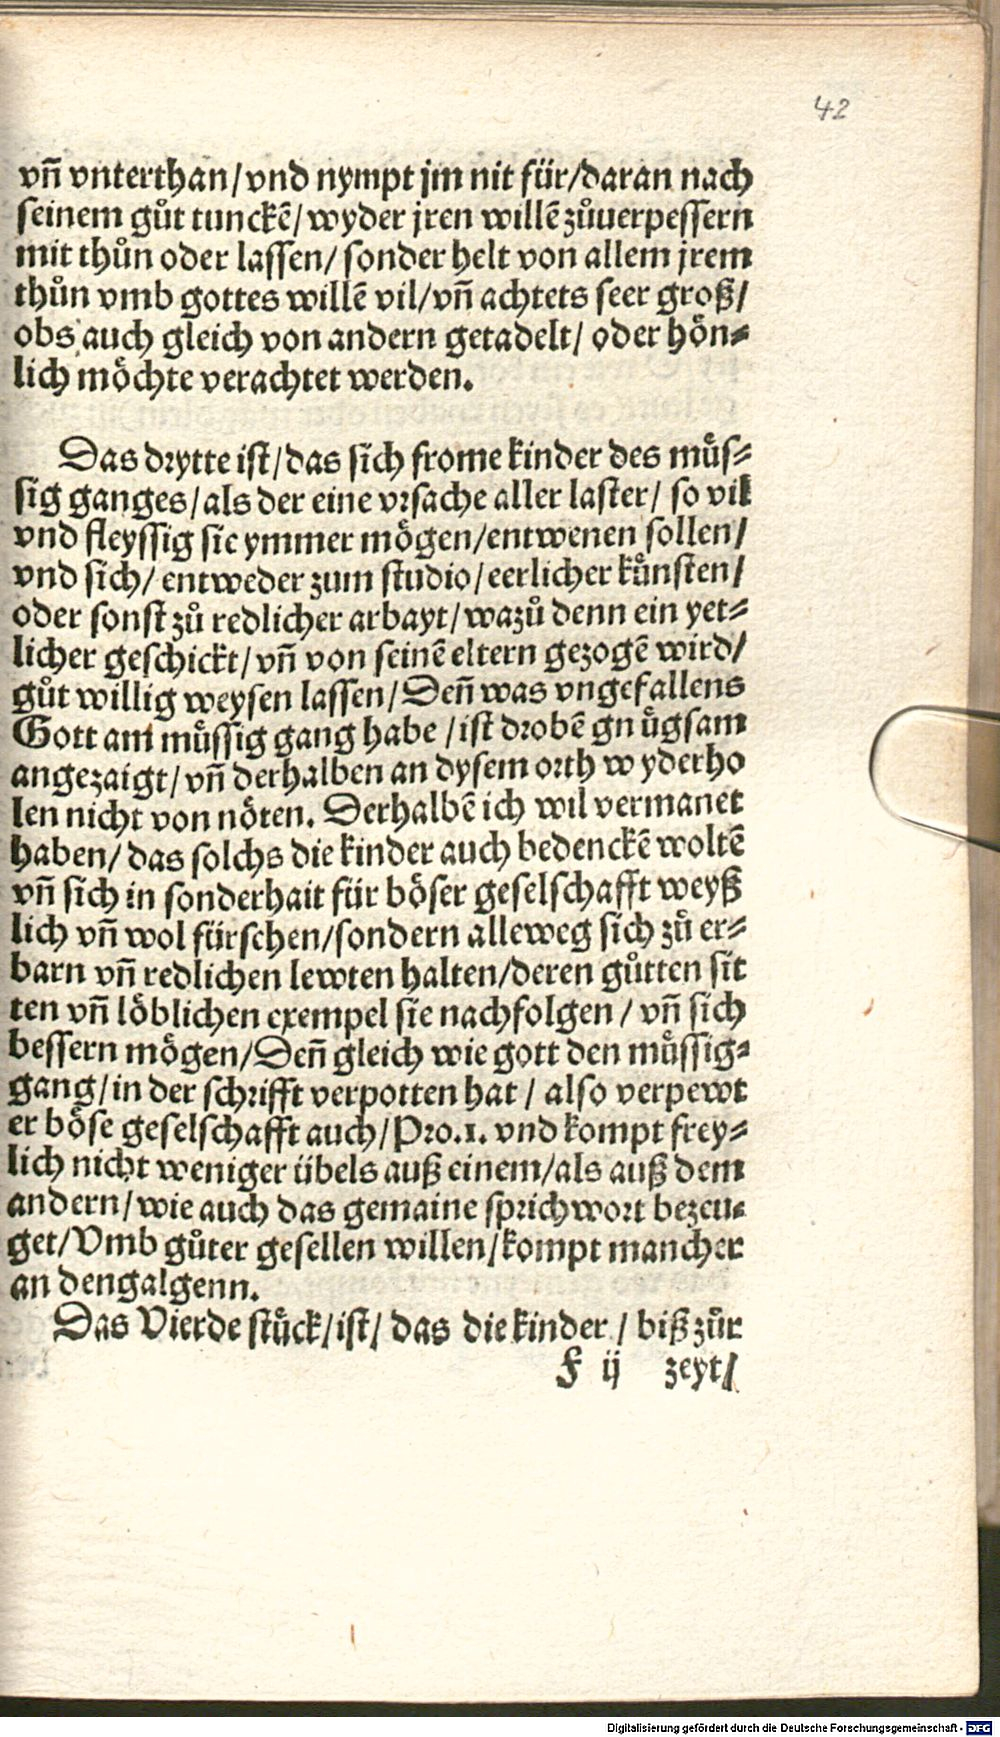 42
vñ vnterthan/vnd nympt jm nit für/daran nach
seinem gůt tunckē/wyder jren willē zůuerpessern
mit thůn oder lassen/ sonder helt von allem jrem
thůn vmb gottes willē vil/vñ achtets seer groß/
obs auch gleich von andern getadelt/ oder hön⸗
lich möchte verachtet werden.
Das drytte ist/das sich frome kinder des müs⸗
sig ganges/als der eine vrsache aller laster/ so vil
vnd fleyssig sie ymmer mögen/entwenen sollen/
vnd sich/ entweder zum studio/eerlicher künsten/
oder sonst zů redlicher arbayt/wazů denn ein yet⸗
licher geschickt/vñ von seinē eltern gezogē wird/
gůt willig weysen lassen/Deñ was vngefallens
Gott am müssig gang habe /ist drobē gn ügsam
angezaigt/vñ derhalben an dysem orth w yderho
len nicht von nöten. Derhalbē ich wil vermanet
haben/ das solchs die kinder auch bedenckē woltē
vñ sich in sonderhait für böser geselschafft weyß
lich vñ wol fürsehen/sondern alleweg sich zů er⸗
barn vñ redlichen lewten halten/deren gůtten sit
ten vñ löblichen exempel sie nachfolgen / vñ sich
bessern mögen/Deñ gleich wie gott den müssig⸗
gang/in der schrifft verpotten hat / also verpewt
er böse geselschafft auch/Pro.1. vnd kompt frey⸗
lich nicht weniger übels auß einem/als auß dem
andern/wie auch das gemaine sprichwort bezeu⸗
get/Vmb gůter gesellen willen/kompt mancher
an dengalgenn.
Das Vierde stück/ist/ das die kinder / biß zůr
F ij zeyt/
Digitalisierung gefördert durch die Deutsche Forschungsgemeinschaft - DFG